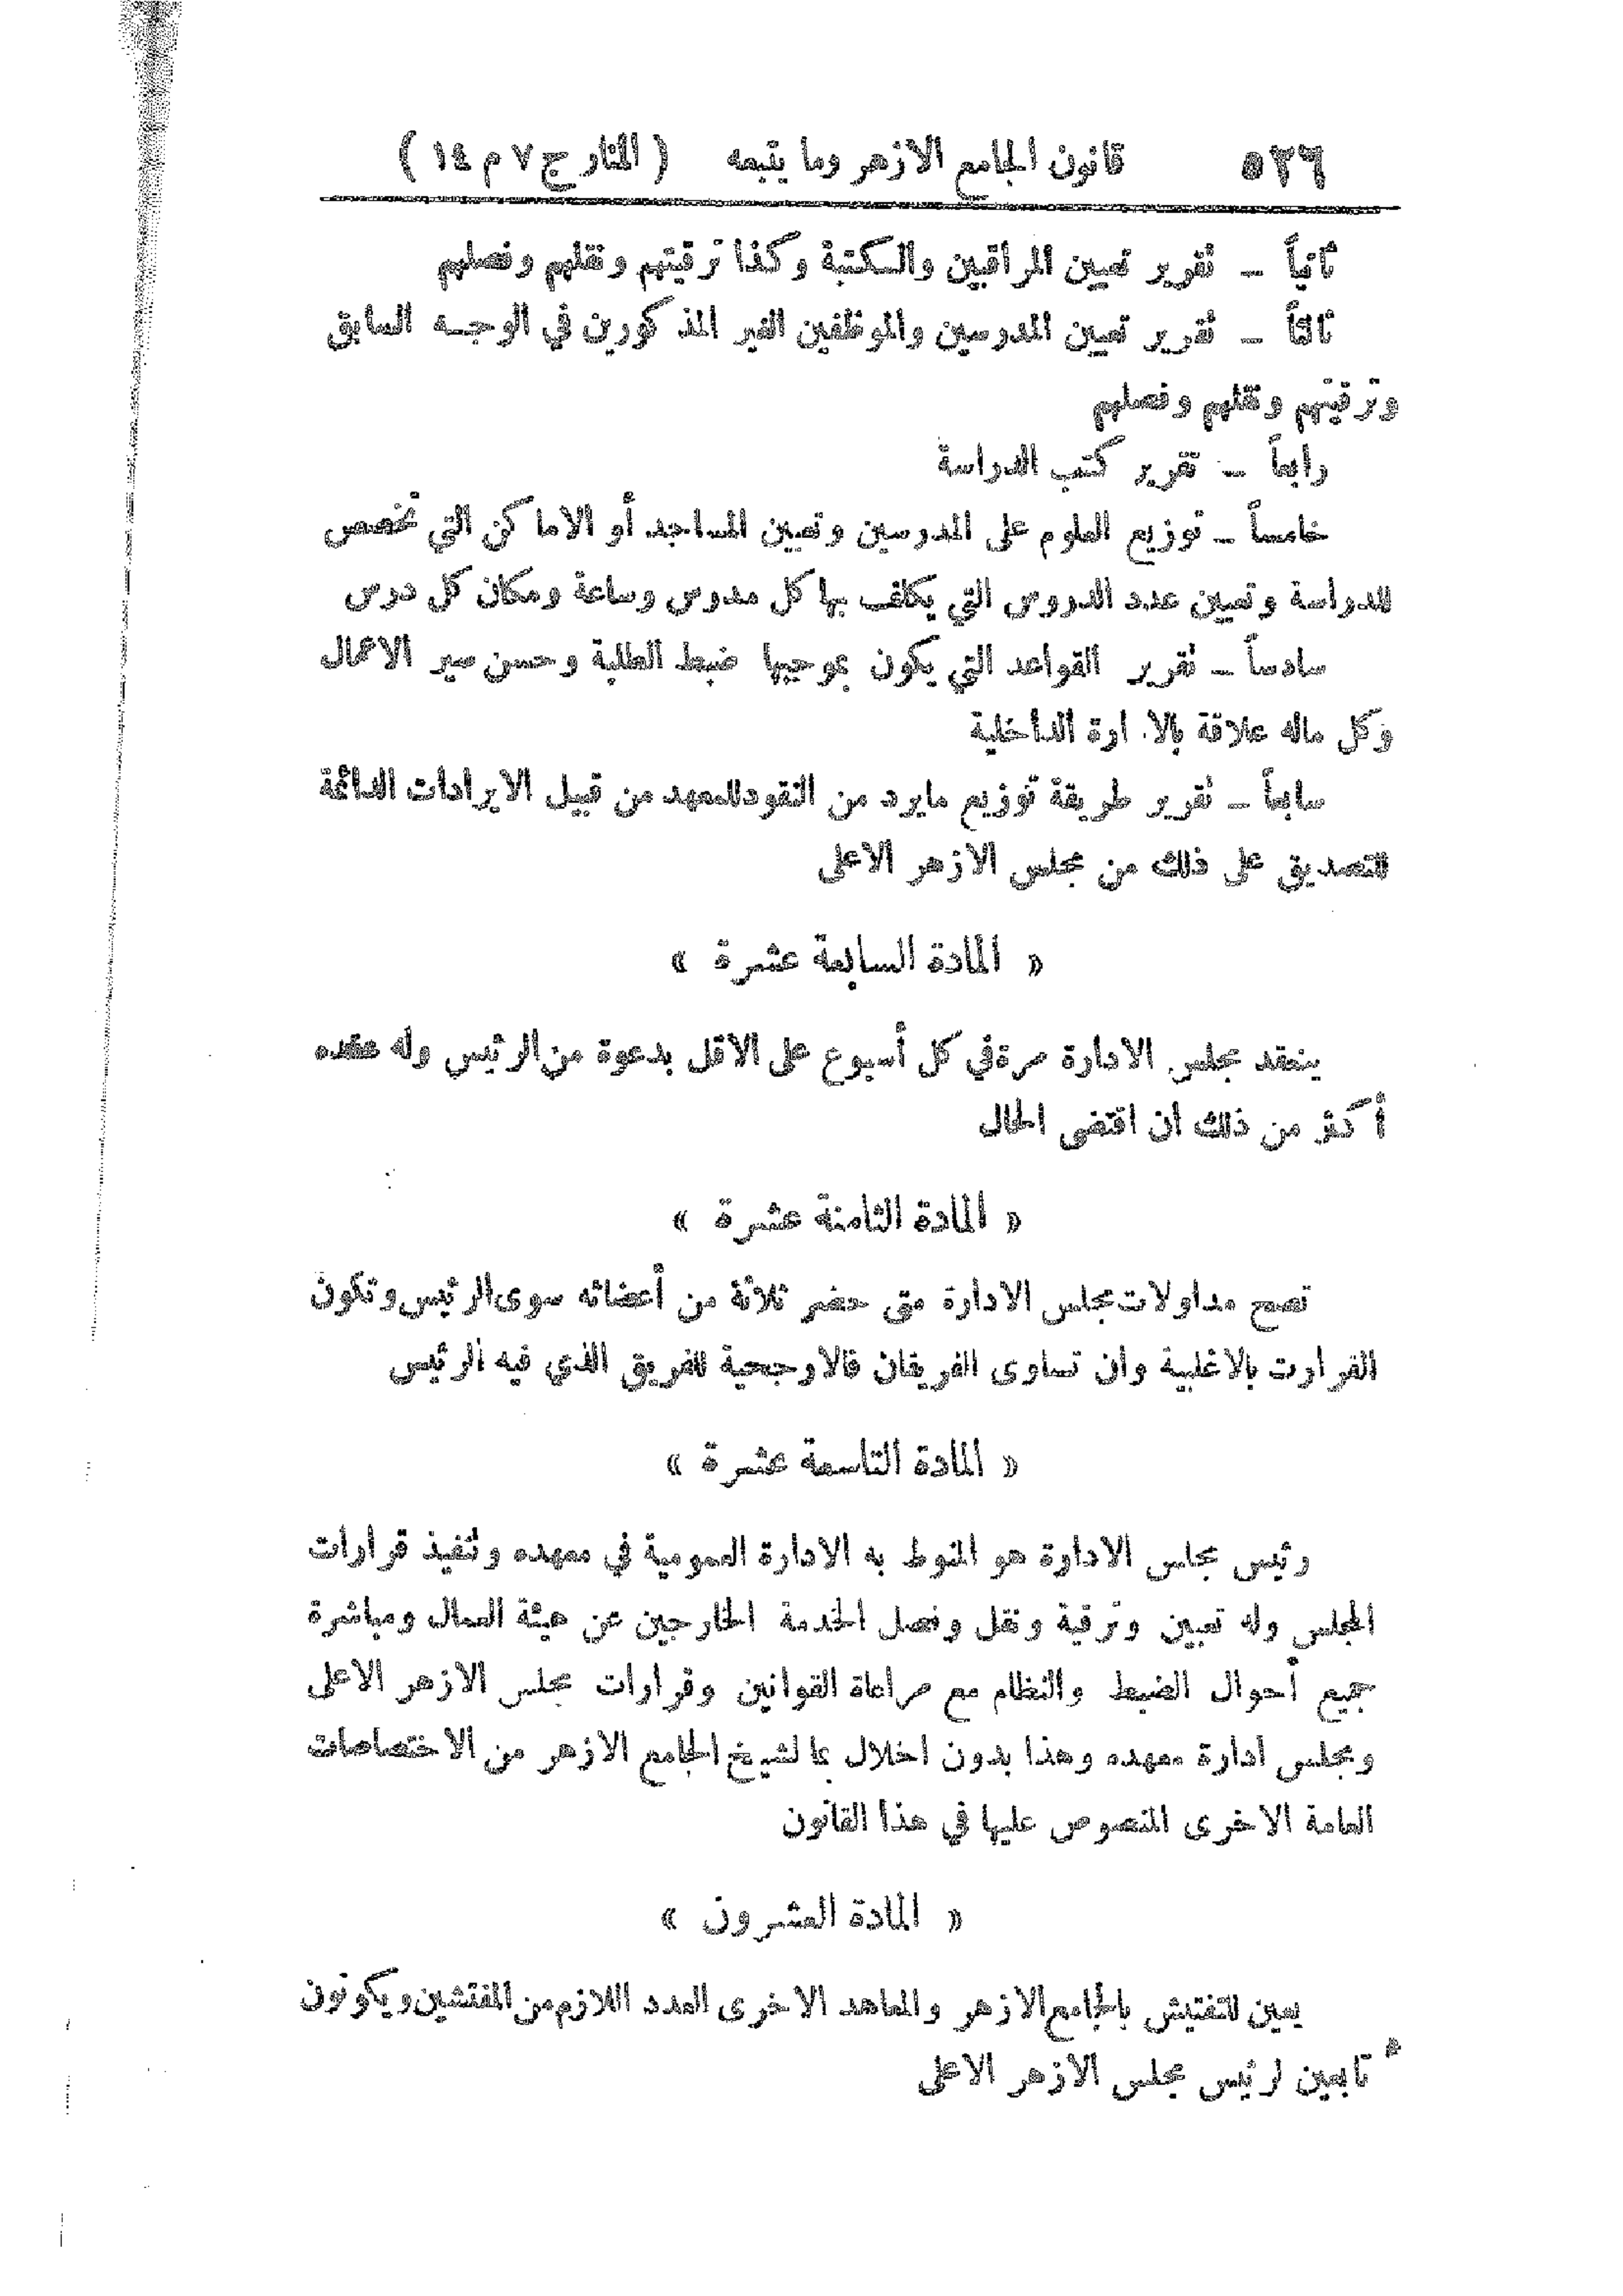 ٥٢٦ قانون الجامع الازهر وما يتبعه ( المنار ج ٧ م ١٤ )
ثانياً – تقرير تعيين المراقبين والكتبة وكذا ترقيتهم ونقلهم وفصلهم
ثالثاً – تقرير تعيين المدرسين والموظفين الغير المذكورين في الوجه السابق
وترقيتهم ونقلهم وفصلهم
رابعاً – تقرير كتب الدراسة
خامساً – توزيع العلوم على المدرسين وتعيين المساجد أو الاماكن التي تخصص
للدراسة وتعيين عدد الدروس التي يكلف بها كل مدرس وساعة ومكان كل درس
سادساً – تقرير القواعد التي يكون بموجبها ضبط الطلبة وحسن سير الاعمال
وكل ماله علاقة بالا ارة الداخلية
سابعاً – تقرير طريقة توزيع مايرد من النقود للمعهد من قبيل الايرادات الدائمة
للتصديق على ذلك من مجلس الازهر الاعلى
« المادة السابعة عشرة »
ينعقد مجلس الادارة مرة في كل أسبوع على الاقل بدعوة من الرئيس وله عقده
أكثر من ذلك ان اقتضى الحال
« المادة الثامنة عشرة »
تصح مداولات مجلس الادارة متى حضر ثلاثة من أعضائه سوى الرئيس وتكون
القرارت بالاغلبية وان تساوى الفريقان فالارجحية للفريق الذي فيه الرئيس
« المادة التاسعة عشرة »
رئيس مجلس الادارة هو المنوط به الادارة العمومية في معهده وتنفيذ قرارات
المجلس وله تعيين وترقية ونقل وفصل الخدمة الخارجين عن هيئة العمال ومباشرة
جميع أحوال الضبط والنظام مع مراعاة القوانين وقرارات مجلس الازهر الاعلى
ومجلس ادارة معهده وهذا بدون اخلال بما لشيخ الجامع الازهر من الاختصاصات
العامة الاخرى المنصوص عليها في هذا القانون
« المادة العشرون »
يعين للتفتيش بالجامع الازهر والمعاهد الاخرى العدد اللازم من المفتشين ويكونون
تابعين لرئيس مجلس الازهر الاعلى